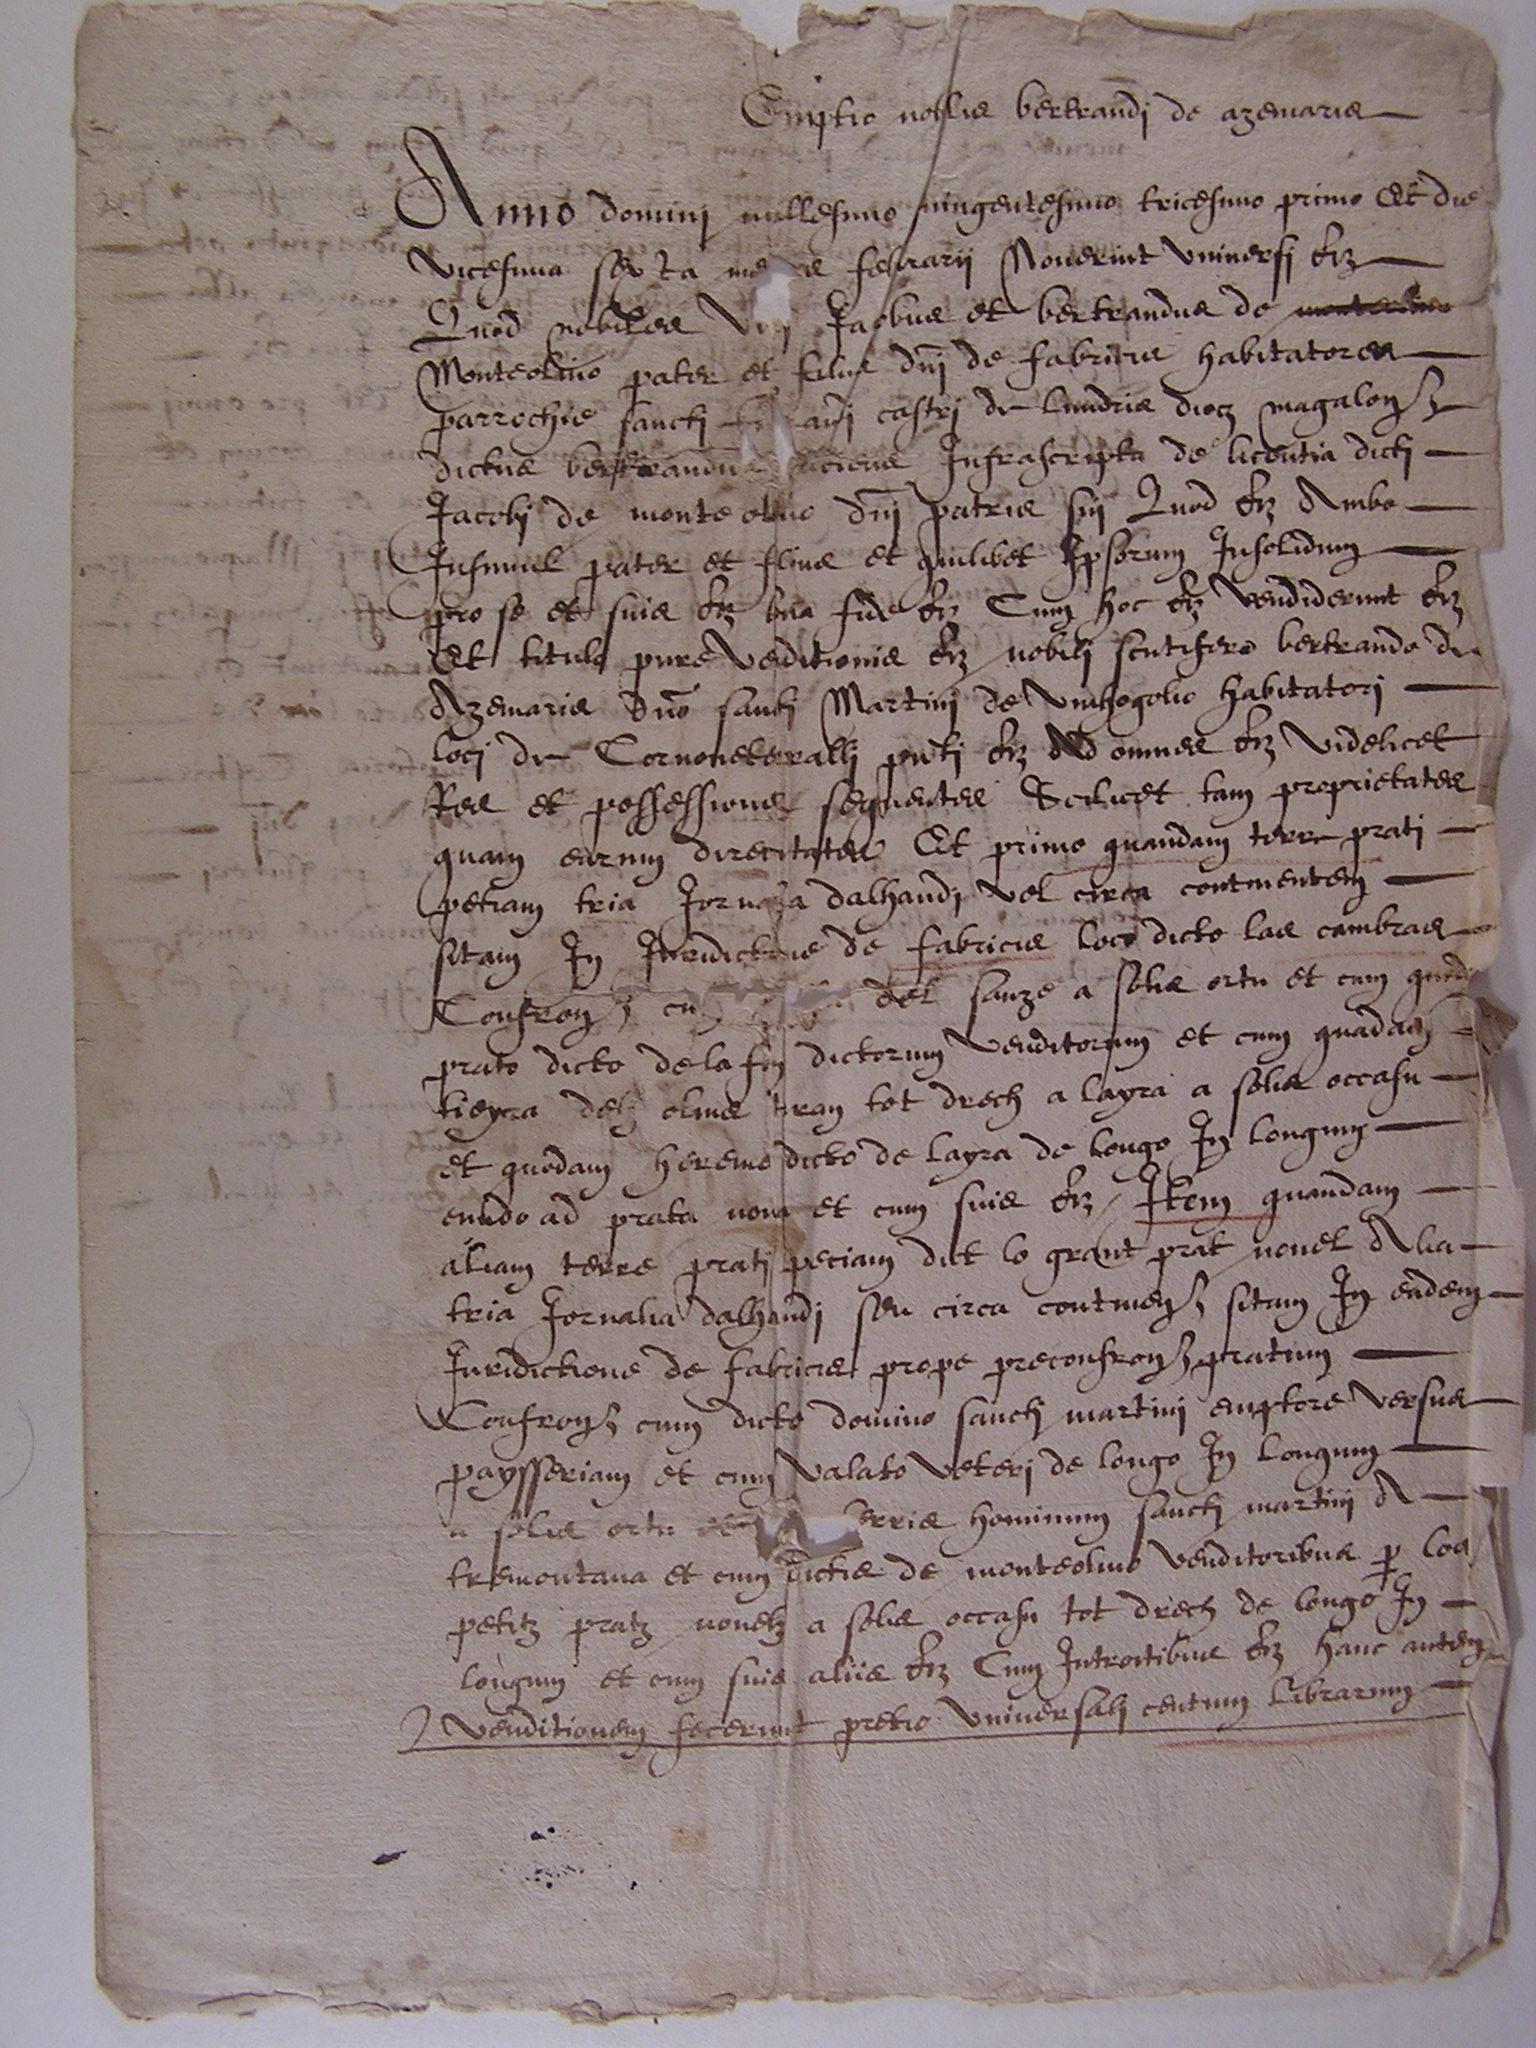 Emptio nobilis bertrandi de azemaris
Anno domini millesimo quingentesimo tricesimo primo Et die
vicesima sexta mensis febrarii Noverint Universi etz
Quod nobiles viri Jacobus et bertrandus de
Monteolivo pater et filius dnj de fabriciis habitatores
parrochie sancti castrj de lundris dioc magalonen
dictus bertrandus faciens Infrascripta de licentia dicti
Jacobj de monte olivo dnj patris sui Quod etz Ambo
Insimul pater et filius et quilibet Ipsorum Insolidum
pro se et suis etz bna fide etz Cum hoc etz vendiderunt etz
Et titulo pure venditionis etz nobili scutifero bertrando de
Azemaris dno sancti Martinj de vinhogolio habitatorj
locj de Cornoneterrallj pntj etz Ad omnes etz videlicet
Res et possessiones sequentes Scilicet tam proprietates
quam earum directitates Et primo quandam terre prati
petiam tria Jornalia dalhandj vel circa continentem
sitam In Juridictione de fabriciis loco dicto las cambras
Confronten cum del sauze a solis ortu et cum quodam
prato dicto de la fon dictorum venditorum et cum quadam
tieyra delz olius tiran tot drech a layra a solis occasu
et quodam heremo dicto de layra de longo In longum
eundo ad prata nova et cum suis etz Item quandam
aliam terre pratj peciam dict lo grant prat novel Alia
tria Jornalia dalhandj seu circa continen sitam In eadem
Juridictione de fabriciis prope preconfron pratum
Confron cum dicto domino sancti martinj emptore versus
paysseriam et cum valato veterj de longo In longum
a solis ortu et terris hominum sancti martini A
tremontana et cum dictis de monteolivo venditoribus p los
petitz pratz novelz a solis occasu tot drech de longo In
longum et cum suis aliis etz Cum Introitibus etz hanc autem
venditionem fecerunt pretio universalj centum librarum